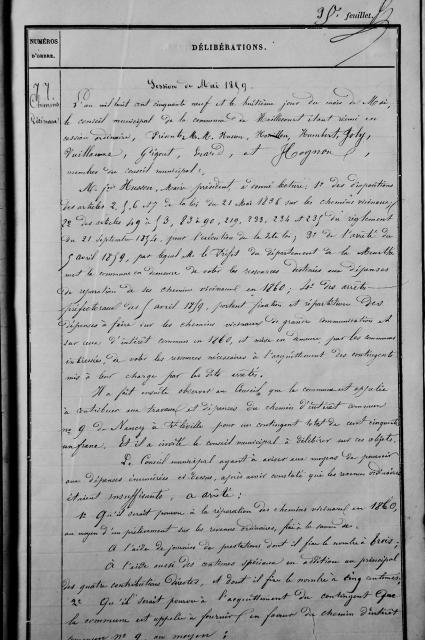 35e feuillet.
NUMÉROS
D'ORDRE.
DÉLIBÉRATIONS.
77
Chemins
Vicinaux
Session de Mai 1859.
L'an mil huit cent cinquante neuf et le huitième jour du mois de Mai,
le conseil municipal de la commune de étant réuni en
session ordinaire, Présents M.M. Husson, Humbert, Joly,
Vuillaume, et Hognon,
membres du conseil municipal.
M. Husson, Maire président, a donné lecture: 1° des dispositions
des articles 2, 5, 6 et de la loi du 21 Mai 1836 sur les chemins vicinaux;
2° des articles 49 à 53, 83 à 90, 219, 233, 234 et 235 du règlement
du 21 Septembre 1854, pour l'exécution de la dite loi; 3° de l'arrêté du
5 avril 1859, par lequel M. le Préfet du département de la Meurthe
met la commune en demeure de voter les ressources destinées aux dépenses
de réparation de ses chemins vicinaux en 1860; 4° des arrêtés
préfectoraux des 5 avril 1859, portant fixation et répartition des
dépenses à faire sur les chemins vicinaux de grande communication et
sur ceux d'intérêt commun en 1860, et mise en demeure par les communes
intéressées, de voter les ressources nécessaires à l'acquittement des contingents
mis à leur charge par les dits arrêtés.
Il a fait ensuite observer au Conseil, que la commune est appelée
à contribuer aux travaux et dépenses du chemin d'intérêt commun
n° 9 de Nancy à pour un contingent total de cent cinquante
un francs. Et il a invité le conseil municipal à délibérer sur ces objets.
Le Conseil municipal ayant à aviser aux moyens de pourvoir
aux dépenses énumérées ci-dessus, après avoir constaté que les revenus ordinaires
étaient insuffisants, a arrêté:
1° Qu'il serait pourvu à la réparation des chemins vicinaux en 1860,
au moyen d'un prélèvement sur les revenus ordinaires, fixé à la somme de.
À l'aide de journées de prestations dont il fixe le nombre à trois;
À l'aide aussi des centimes spéciaux en addition au principal
des quatre contributions directes, et dont il fixe le nombre à cinq centimes;
2° Qu'il serait pourvu à l'acquittement du contingent que
la commune est appelée à fournir en faveur du chemin d'intérêt
commun n° 9, au moyen: